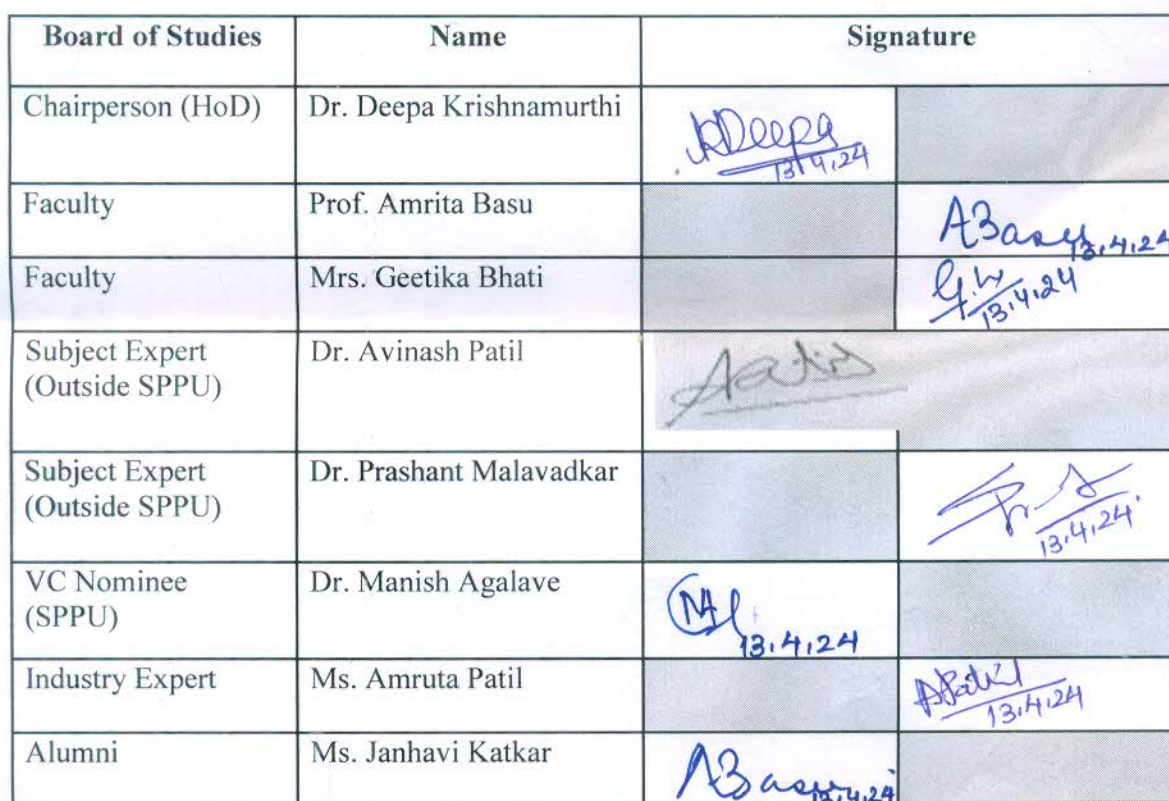 Board of Studies Name Signature
Chairperson (HoD) Dr. Deepa Krishnamurthi KDeepa
13.4.24
Faculty Prof. Amrita Basu ABasu 13.4.24
Faculty Mrs. Geetika Bhati
13.4.24
Subject Expert Dr. Avinash Patil
(Outside SPPU)
Subject Expert Dr. Prashant Malavadkar
(Outside SPPU) 13.4.24
VC Nominee Dr. Manish Agalave
(SPPU) 13.4.24
Industry Expert Ms. Amruta Patil APatil
13.4.24
Alumni Ms. Janhavi Katkar ABasu 13.4.24